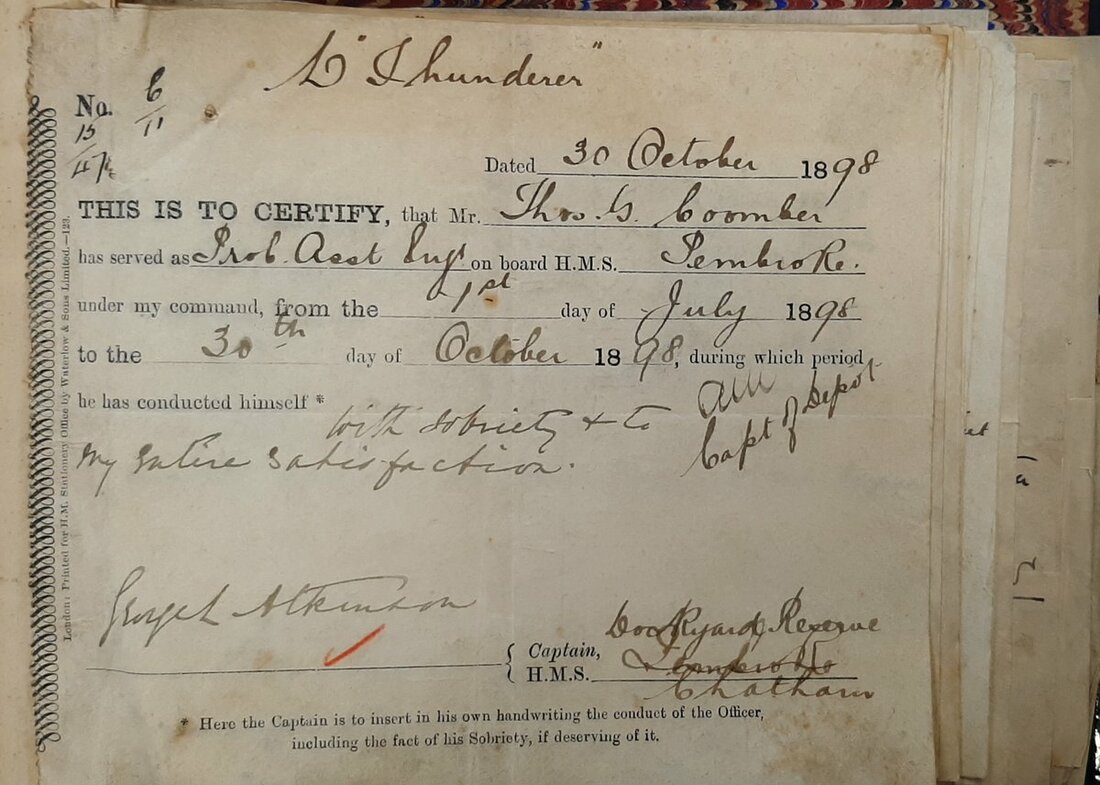 "Thunderer"
No. 6/11
15
Dated 30 October 1898
THIS IS TO CERTIFY, that Mr. Thos. G. Coomber
has served as Prob. Asst Engr on board H.M.S. Pembroke.
under my command, from the 1st day of July 1898
to the 30th day of October 1898, during which period
he has conducted himself * with sobriety & to
my entire satisfaction.
Capt of Depot
George L Atkinson
Dockyard Reserve
{ Captain,
H.M.S. Pembroke
Chatham
* Here the Captain is to insert in his own handwriting the conduct of the Officer,
including the fact of his Sobriety, if deserving of it.
London: Printed for H.M. Stationery Office by Waterlow & Sons Limited.—123.